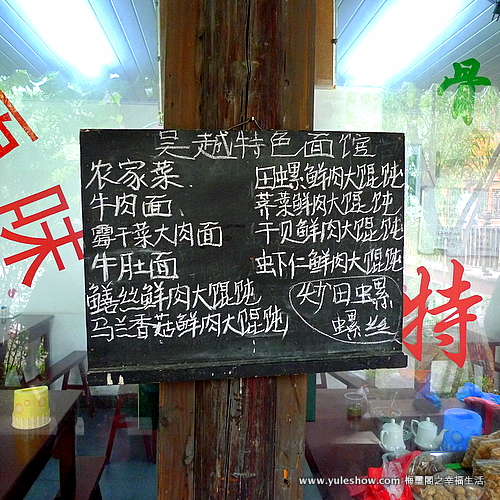 吴越特色面馆
农家菜
牛肉面
霉干菜大肉面
牛肚面
鳝丝鲜肉大馄饨
马兰香菇鲜肉大馄饨
田螺鲜肉大馄饨
荠菜鲜肉大馄饨
干贝鲜肉大馄饨
虾仁鲜肉大馄饨
炒田螺
螺丝
味
特
骨
www.yuleshow.com 梅璽閣之幸福生活